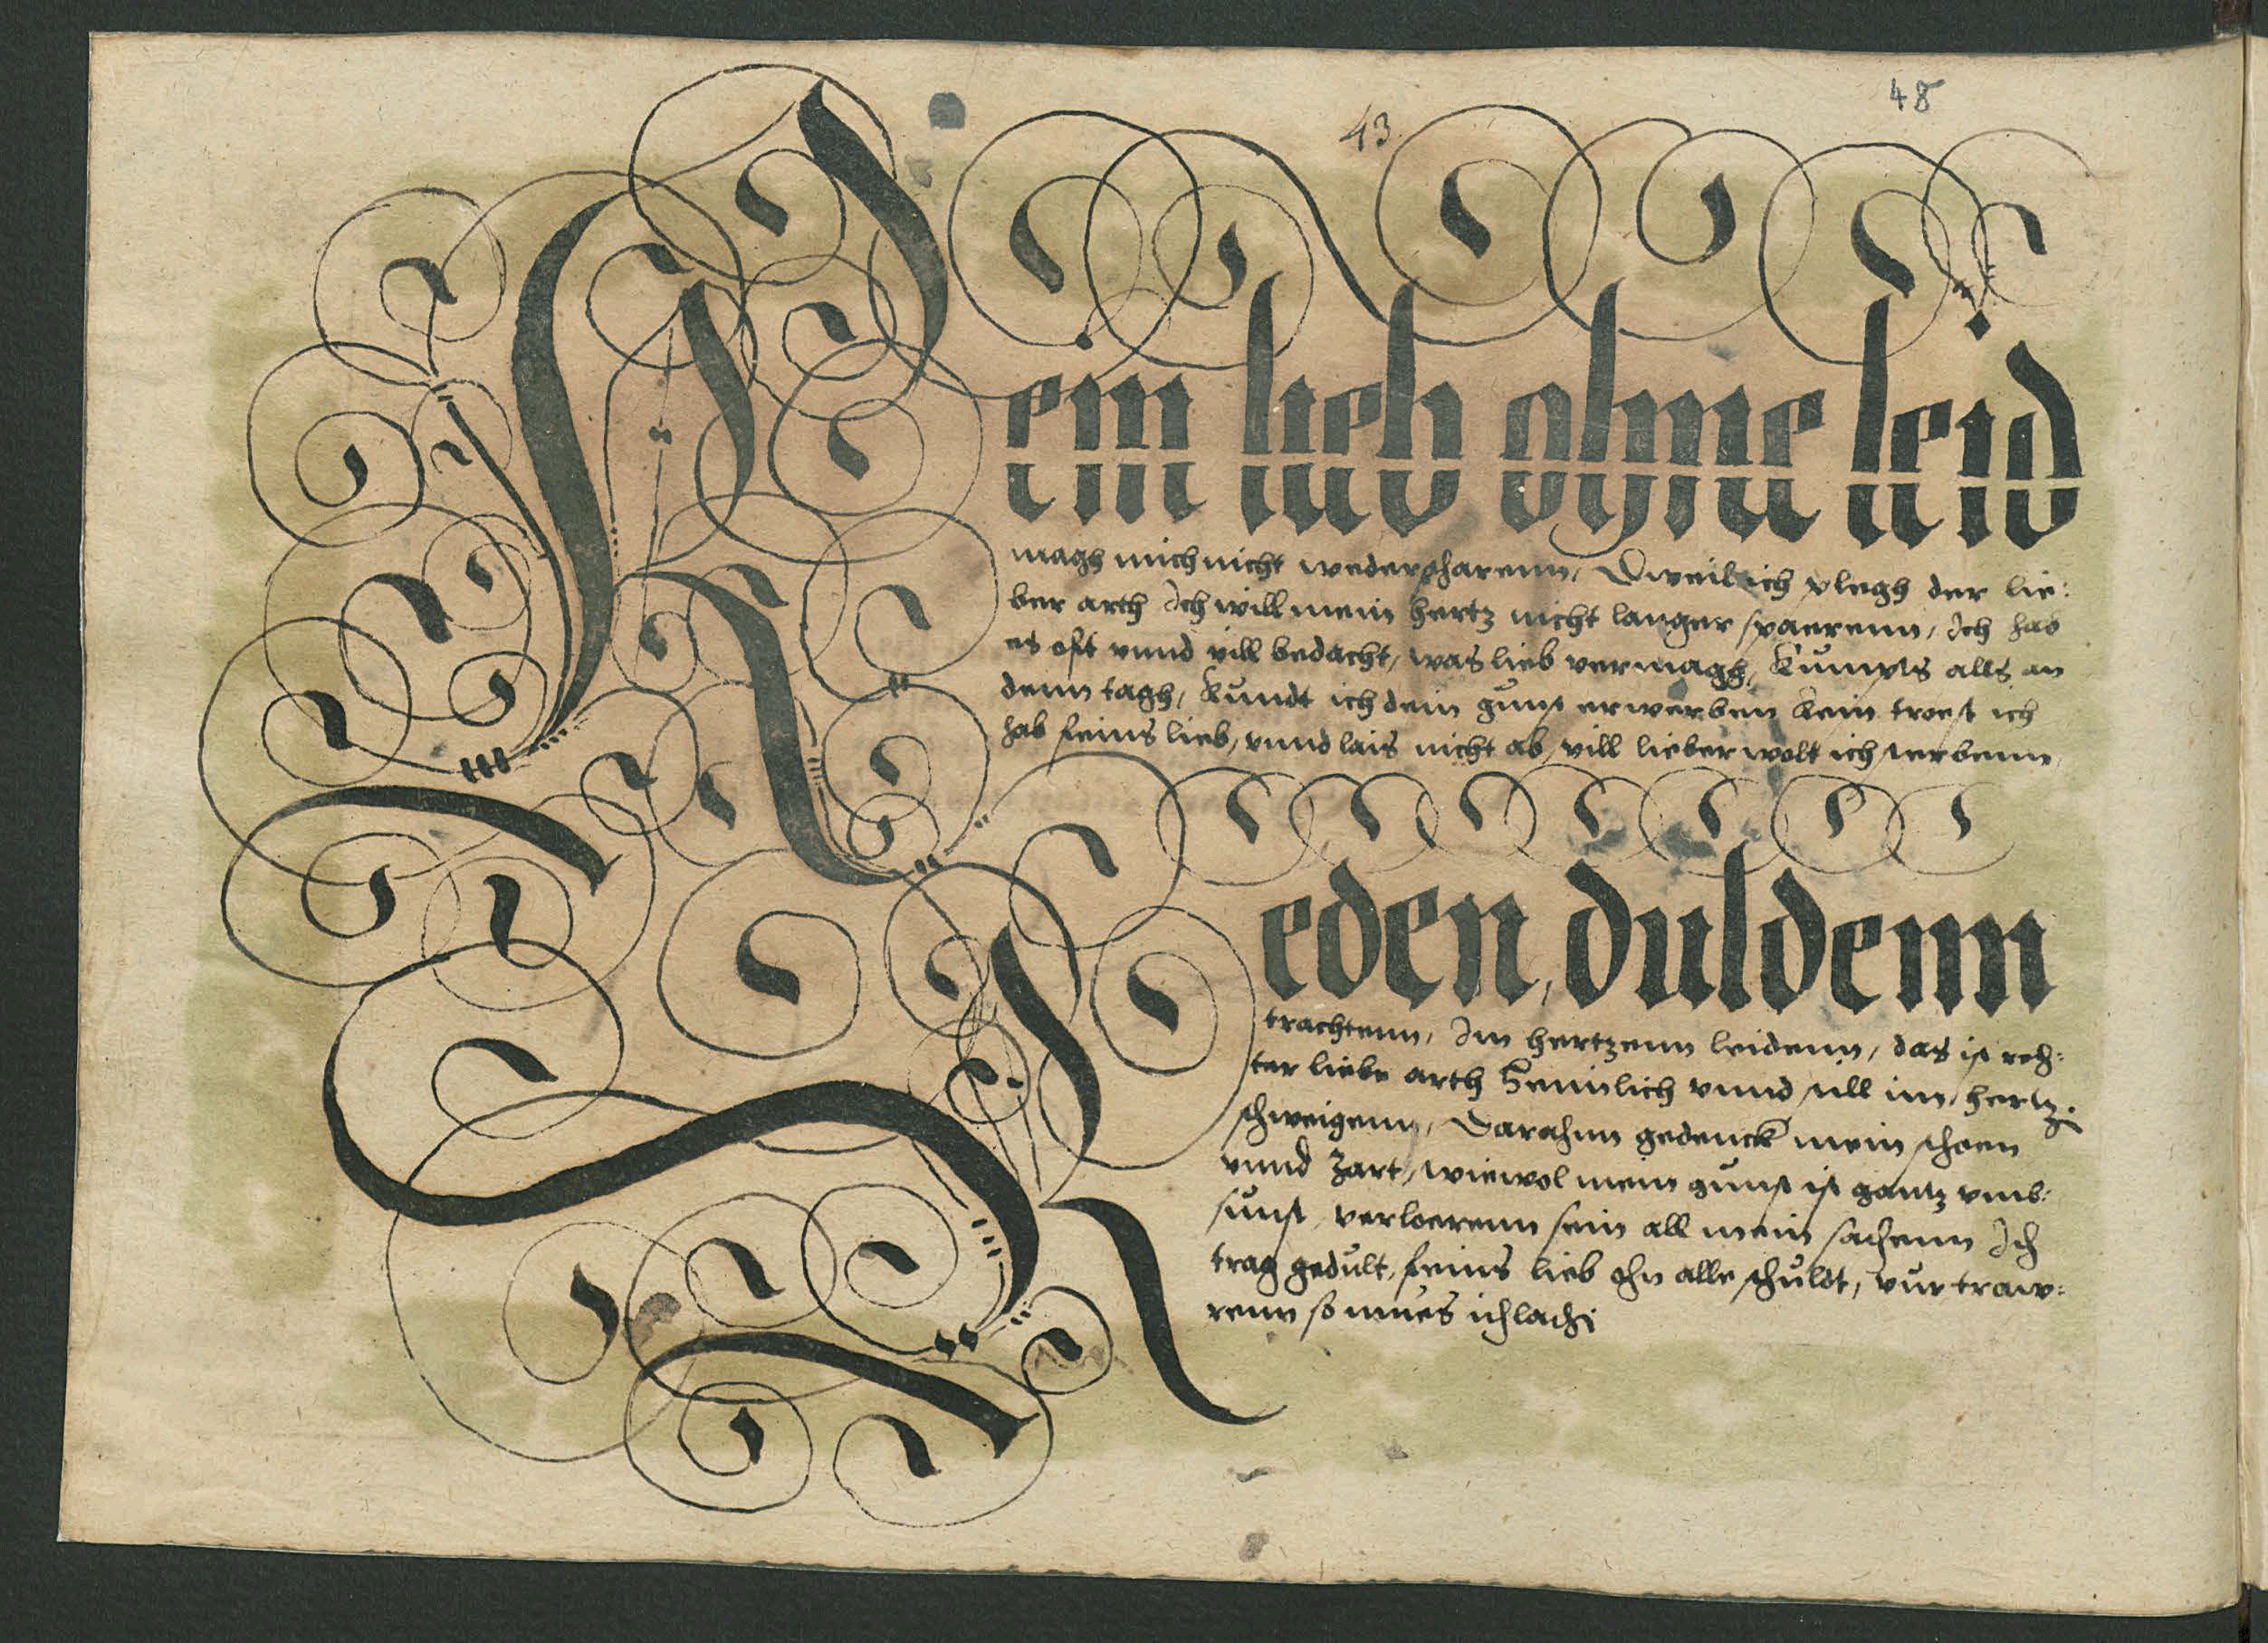 43
48
Kein lieb ohne leid
magh mich nicht wederfharenn, Dweil ich plegh der lie:
ber arth Ich will mein hertz nicht langer spaerenn, Ich hab
es oft vnnd vill bedacht, was lieb vermagh, Kumpts alls an
denn tagh, Kundt ich dein gunst erwerben kein troest ich
hab feins lieb, vnnd lais nicht ab, vill lieber wolt ich sterbenn
Reden, duldenn
trachtenn, Im hertzenn leidenn, das ist rech:
ter liebe arth Heimlich vnnd still im hertz:
schweigenn, Darahnn gedenck mein schoen
vnnd Zart, wiewol mein gunst ist gantz vmb:
sunst, verloerenn sein all mein sachenn Ich
trag gedult, feins lieb ohn alle schuldt, vur traw:
renn so mues ich lach